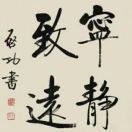 寧靜
致遠
啟功書